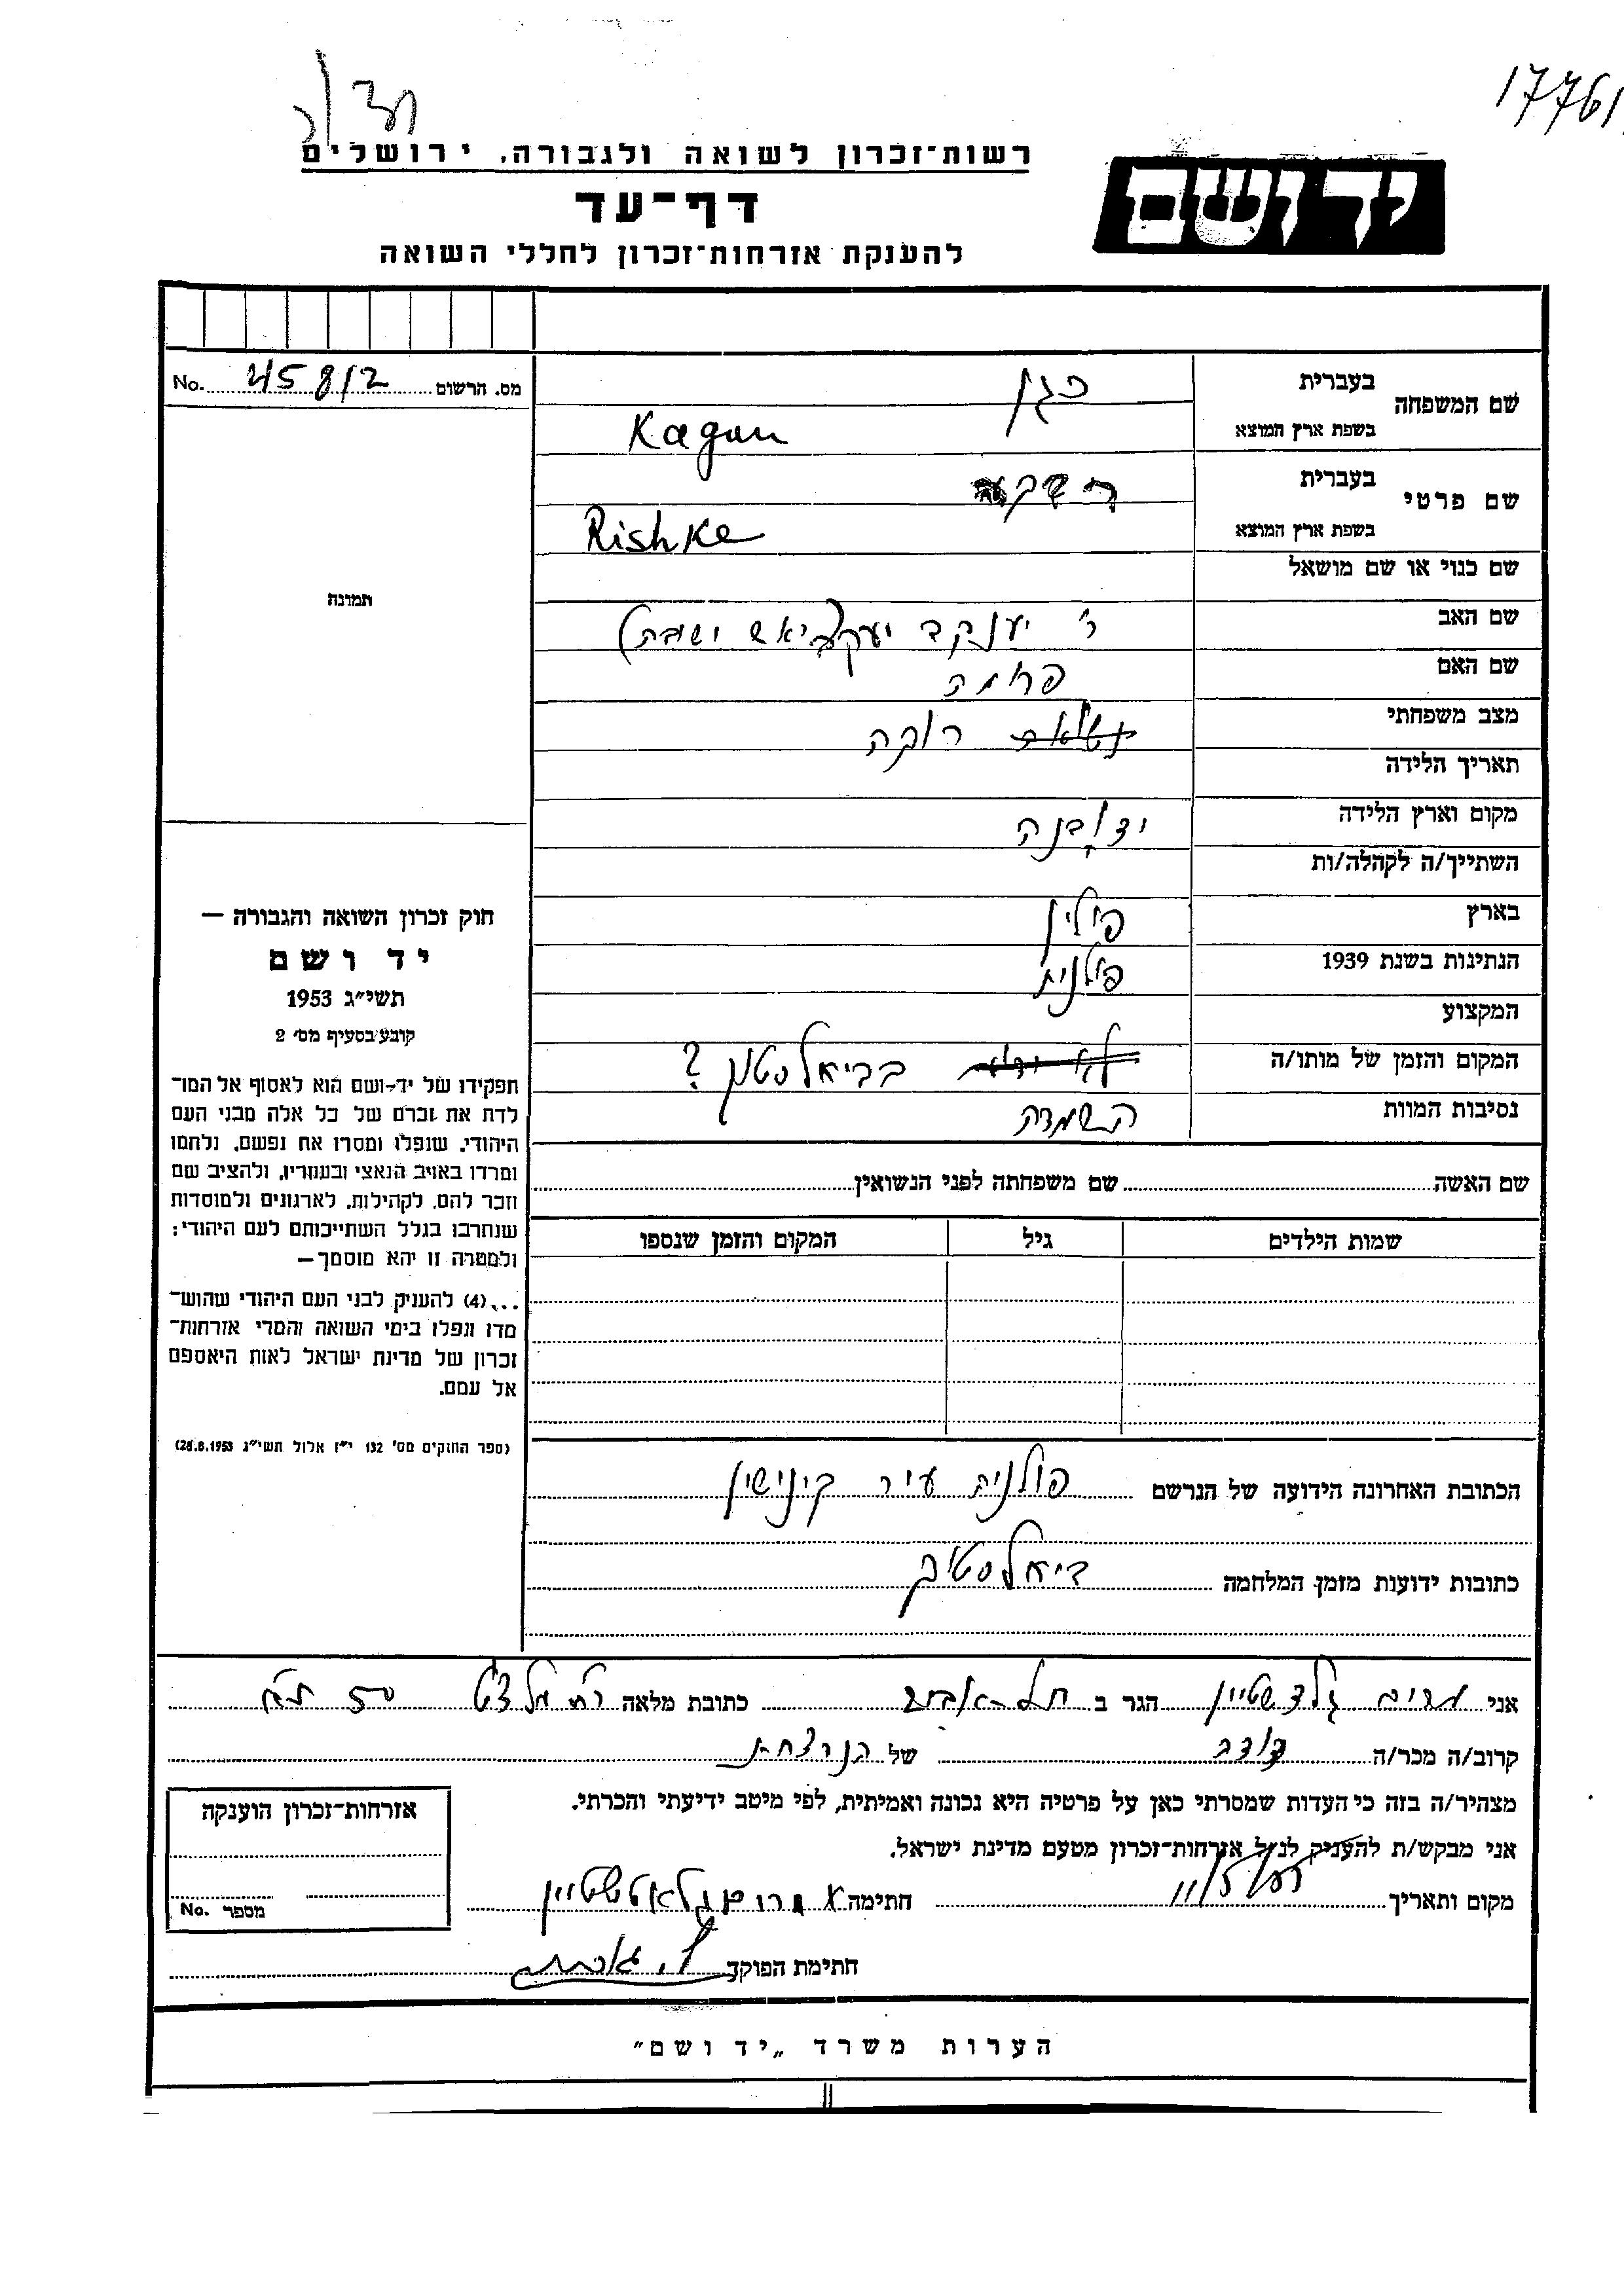 17761
רשות־זכרון לשואה ולגבורה, ירושלים
ידושם
דף־עד
להענקת אזרחות־זכרון לחללי השואה
מס. הרשום No. 45812
שם המשפחה בעברית כגן
בשפת ארץ המוצא Kagan
שם פרטי בעברית רישקע
בשפת ארץ המוצא Rishke
שם כנוי או שם מושאל
תמונה
שם האב ר'
שם האם
מצב משפחתי רוקה
תאריך הלידה
מקום וארץ הלידה
השתייך/ה לקהלה/ות
בארץ פולין
הנתינות בשנת 1939 פולנית
המקצוע
המקום והזמן של מותו/ה בביאליסטוק ?
נסיבות המוות השמדה
שם האשה שם משפחתה לפני הנשואין
שמות הילדים גיל המקום והזמן שנספו
חוק זכרון השואה והגבורה —
יד ושם
תשי״ג 1953
קובע בסעיף מס׳ 2
תפקידו של יד־ושם הוא לאסוף אל המו־
לדת את זכרם של כל אלה מבני העם
היהודי, שנפלו ומסרו את נפשם, נלחמו
ומרדו באויב הנאצי ובעוזריו, ולהציב שם
וזכר להם, לקהילות, לארגונים ולמוסדות
שנחרבו בגלל השתייכותם לעם היהודי;
ולמטרה זו יהא מוסמך—
...(4) להעניק לבני העם היהודי שהוש־
מדו ונפלו בימי השואה והמרי אזרחות־
זכרון של מדינת ישראל לאות היאספם
אל עמם.
(ספר החוקים מס׳ 132 י״ז אלול תשי״ג 28.8.1953)
הכתובת האחרונה הידועה של הנרשם פולנית עיר קינישין
כתובות ידועות מזמן המלחמה ביאלסטוק
אני מרים גולדשטיין הגר ב תל-אביב כתובת מלאה 50
קרוב/ה מכר/ה קרוב של הנרצחת
מצהיר/ה בזה כי העדות שמסרתי כאן על פרטיה היא נכונה ואמיתית, לפי מיטב ידיעתי והכרתי.
אני מבקש/ת להעניק לנ״ל אזרחות־זכרון מטעם מדינת ישראל.
מקום ותאריך חתימה
חתימת הפוקד
אזרחות־זכרון הוענקה
מספר No.
הערות משרד „יד ושם״